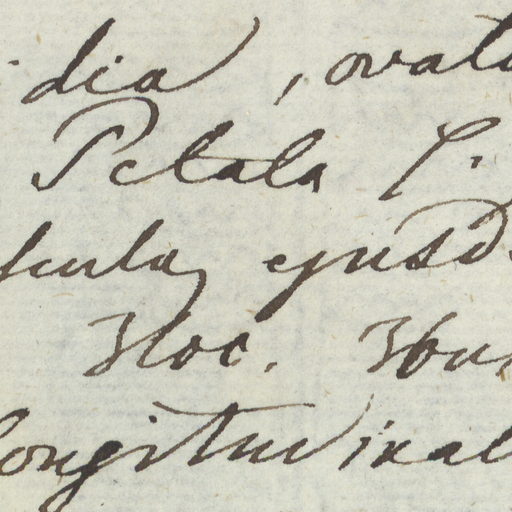 dia, ovat
Petala 5.
surla, ejusd.
Hoc. Hun
longitudinal